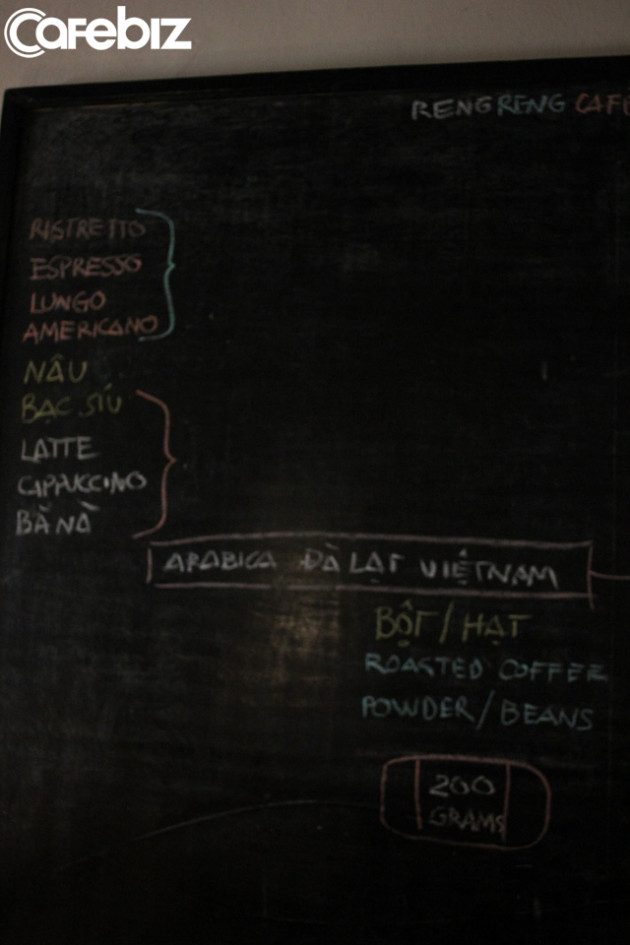 Cafebiz
RENGRENG CAFE
RISTRETTO
ESPRESSO
LUNGO
AMERICANO
NÂU
BẠC SÍU
LATTE
CAPPUCCINO
BẰNÀ
ARABICA ĐÀ LẠT VIỆTNAM
BỘT/HẠT
ROASTED COFFEE
POWDER/BEANS
200
GRAMS